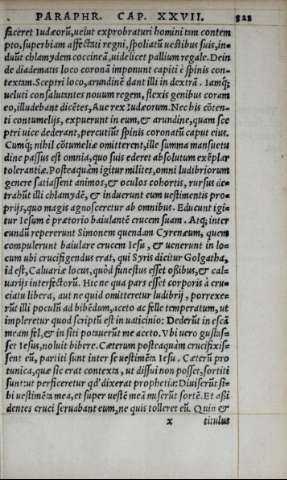 PARAPHR. CAP. XXVII. 328
faceret Iudæorũ, uelut exprobraturi homini tam contem
pto, superbiam affectati regni, spoliatũ uestibus suis, in-
duũt chlamydem coccineã, uidelicet pallium regale. Dein
de diadematis loco coronã imponunt capiti è spinis con-
textam. Sceptri loco, arundinẽ dant illi in dextrã. Iamq́;
ueluti consalutantes nouum regem, flexis genibus coram
eo, illudebant dicẽtes, Aue rex Iudæorum. Nec his cõten-
ti contumelijs, expuerunt in eum, & arundine, quam sce
ptri uice dederant, percutiũt spinis coronatũ caput eius.
Cumq́; nihil cõtumeliæ omitterent, ille summa mansuetu
dine passus est omnia, quo suis ederet absolutum exẽplar
tolerantiæ. Posteaquàm igitur milites, omni ludibriorum
genere satiassent animos, & oculos cohortis, rursus de-
trahũt illi chlamydẽ, & induerunt eum uestimentis pro-
prijs, quo magis agnosceretur ab omnibus. Educunt igi-
tur Iesum è prætorio baiulantẽ crucem suam. Atq́; inter
eundũ repererunt Simonem quendam Cyrenæum, quem
compulerunt baiulare crucem Iesu, & uenerunt in lo-
cum ubi crucifigendus erat, qui Syris dicitur Golgatha,
id est, Caluariæ locus, quòd funestus esset oßibus, & cal-
uarijs interfectorũ. Hic ne qua pars esset corporis à cru-
ciatu libera, aut ne quid omitteretur ludibrij, porrexe-
rũt illi poculũ ad bibẽdum, aceto ac felle temperatum, ut
impleretur quod scriptũ est in uaticinio: Dederũt in escã
meam fel, & in siti potauerũt me aceto. Vbi uero gustas-
set Iesus, noluit bibere. Cæterum posteaquàm crucifixis-
sent eũ, partiti sunt inter se uestimẽta Iesu. Cæterũ pro
tunica, quæ sic erat contexta, ut dissui non posset, sortiti
sunt: ut perficeretur qđ dixerat prophetia: Diuiserũt si-
bi uestimẽta mea, et super uestẽ meã miserũt sortẽ. Et aßi
dentes cruci seruabant eum, ne quis tolleret eũ. Quin &
x titulus